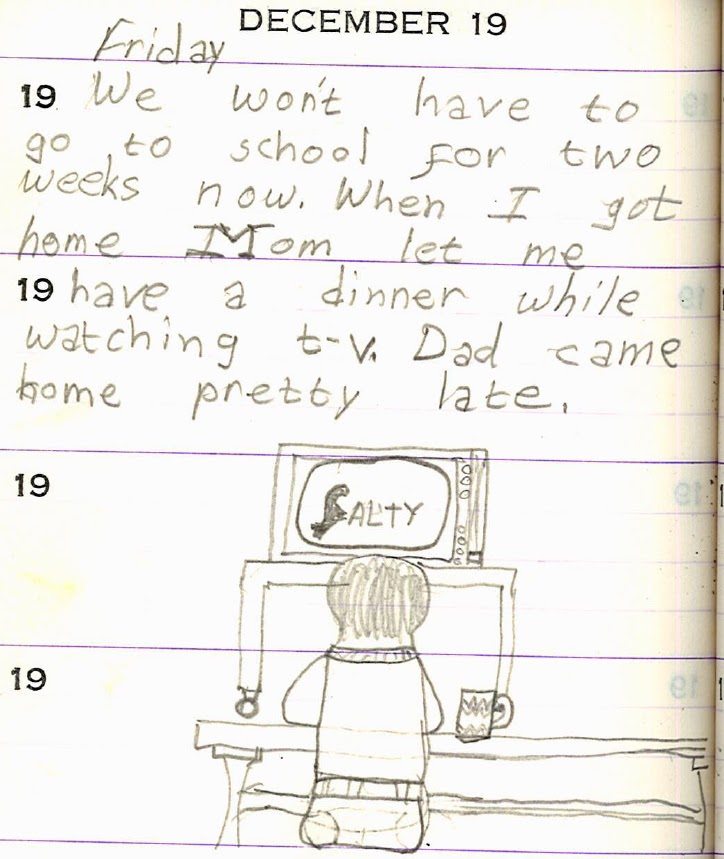 DECEMBER 19
Friday
19 We won't have to
go to school for two
weeks now. When I got
home Mom let me
19 have a dinner while
watching t-v. Dad came
home pretty late.
19
SALTY
19